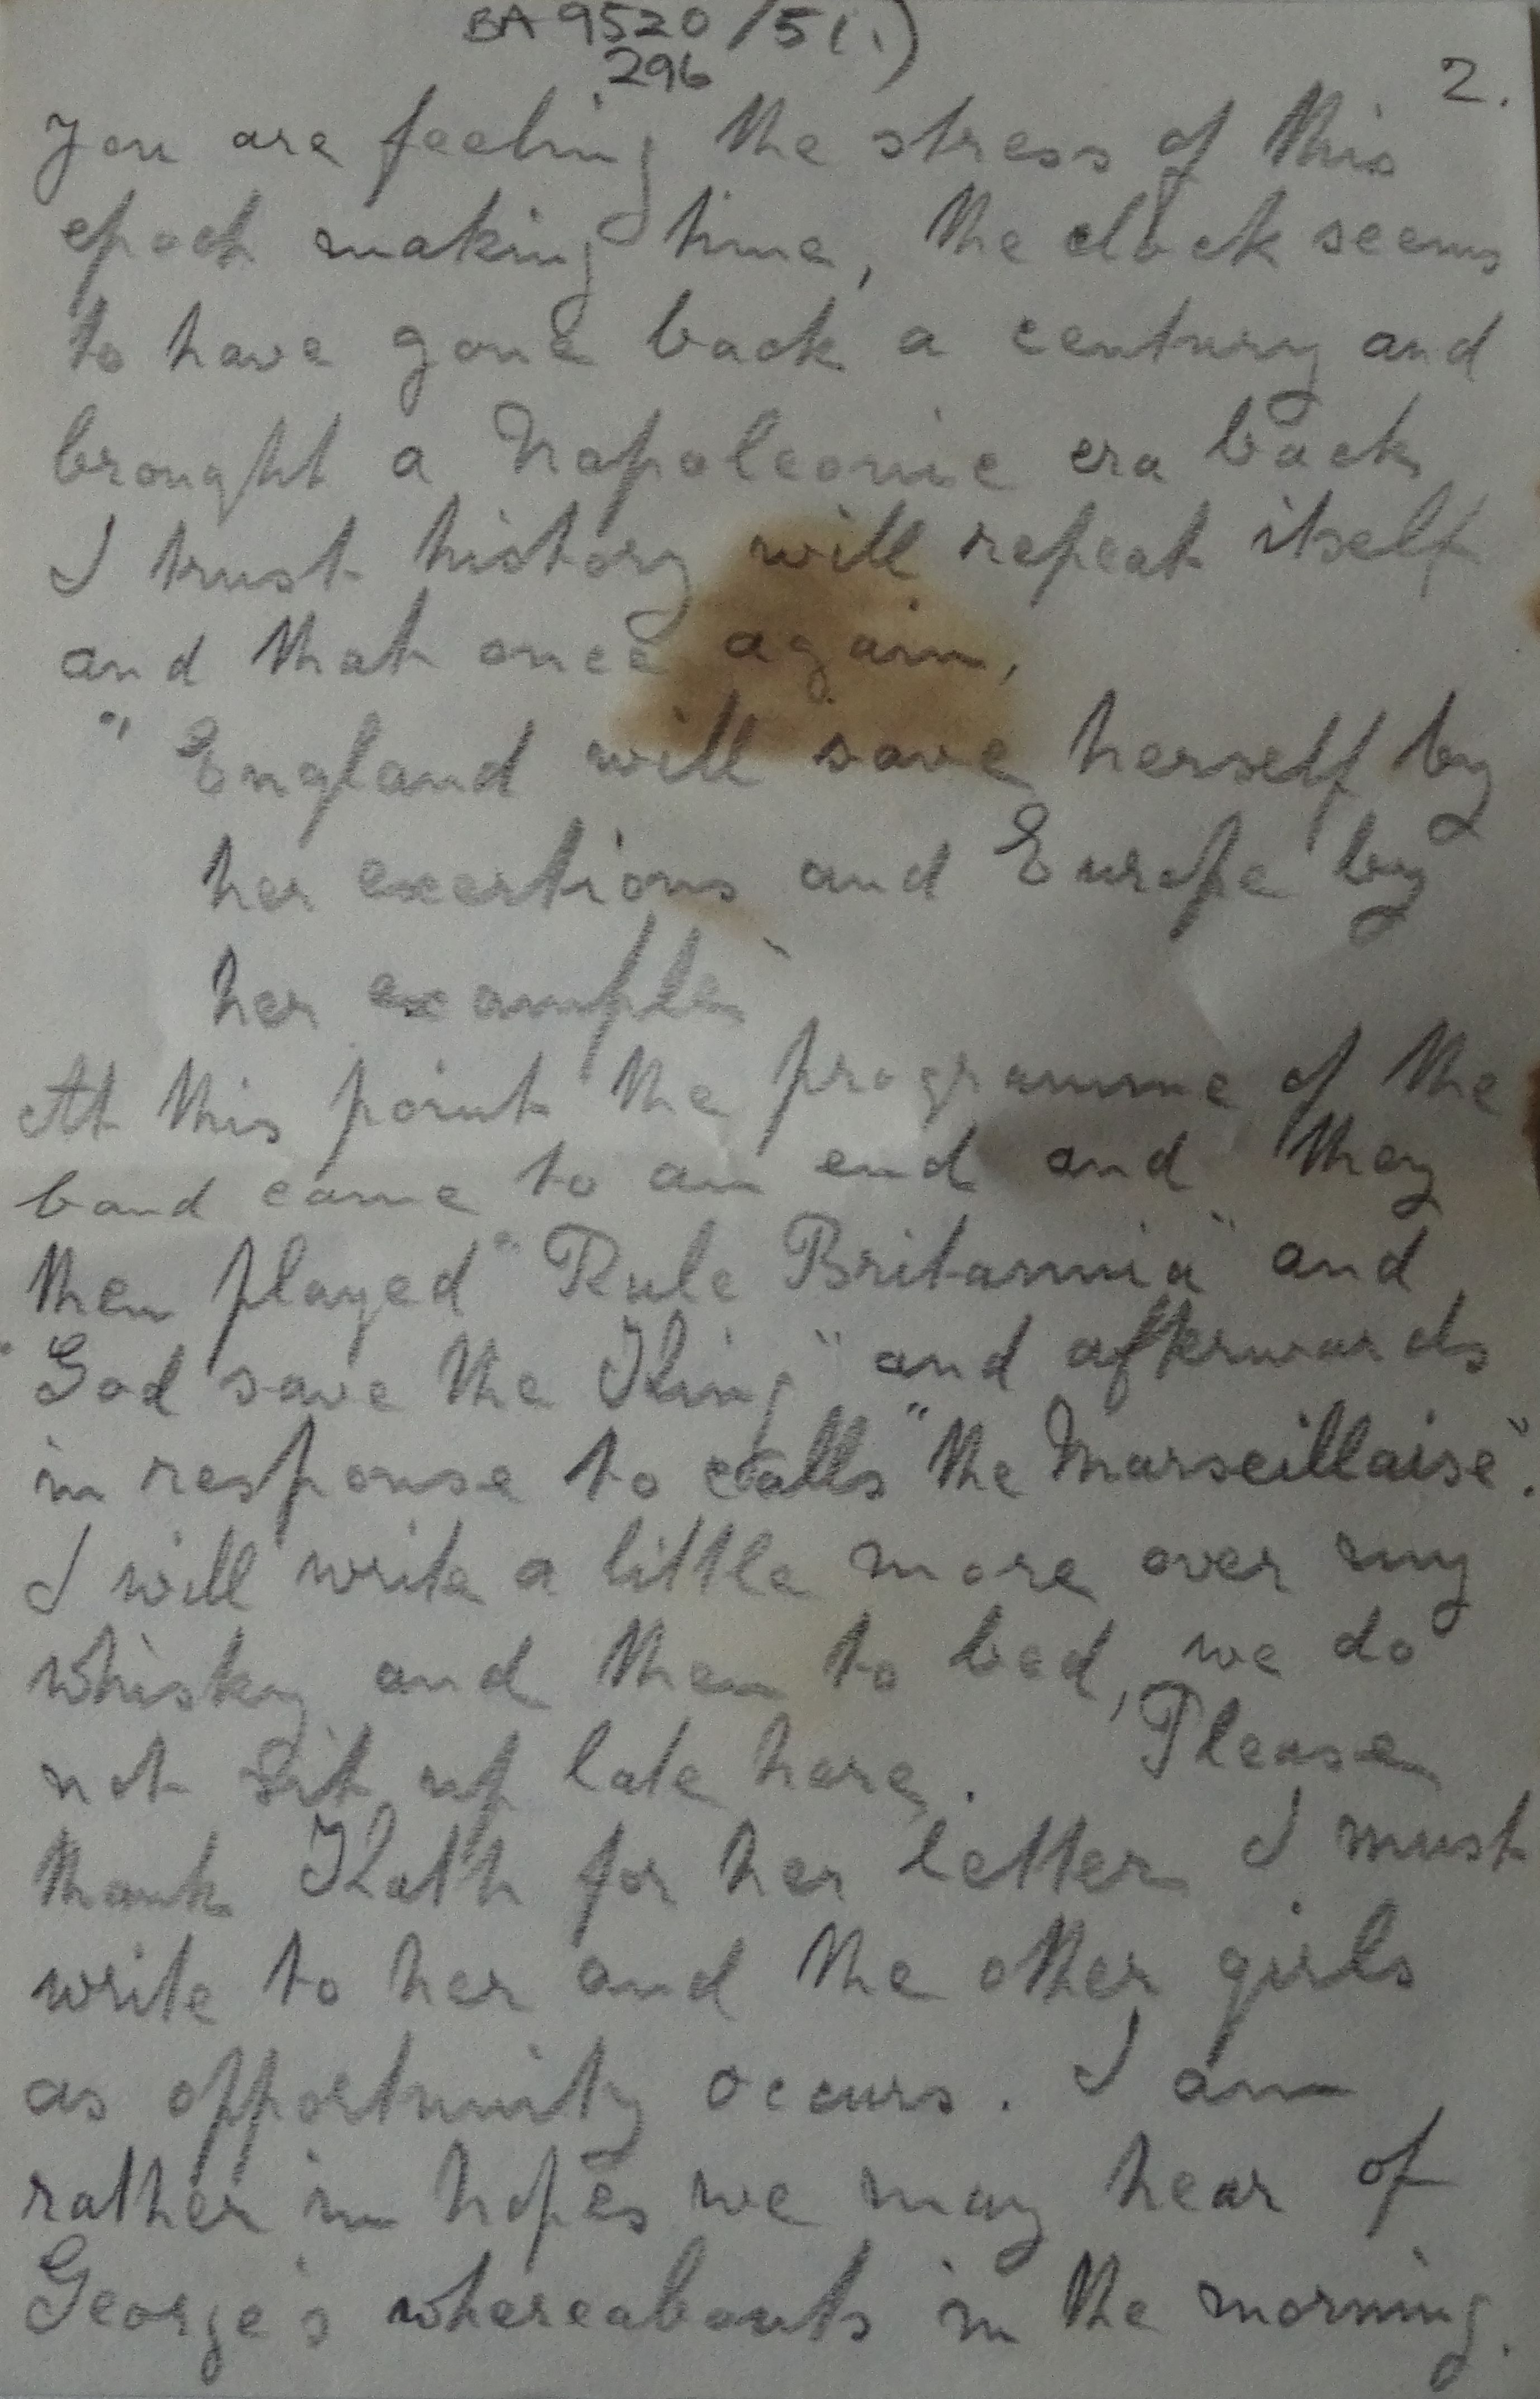 BA 9520/5(1)
296
2.
you are feeling the stress of this
epoch making time, the clock seems
to have gone back a century and
brought a Napoleonic era back
I trust history will repeat itself
and that once again,
" England will save herself by
her exertions and Europe by
her example"
At this point the programme of the
band came to an end and they
then played "Rule Britannia" and
"God save the King" and afterwards
in response to calls "the Marseillaise".
I will write a little more over my
whisky and then to bed, we do
not sit up late here. Please
thank Kath for her letter I must
write to her and the other girls
as opportunity occurs. I am
rather in hopes we may hear of
George's whereabouts in the morning.